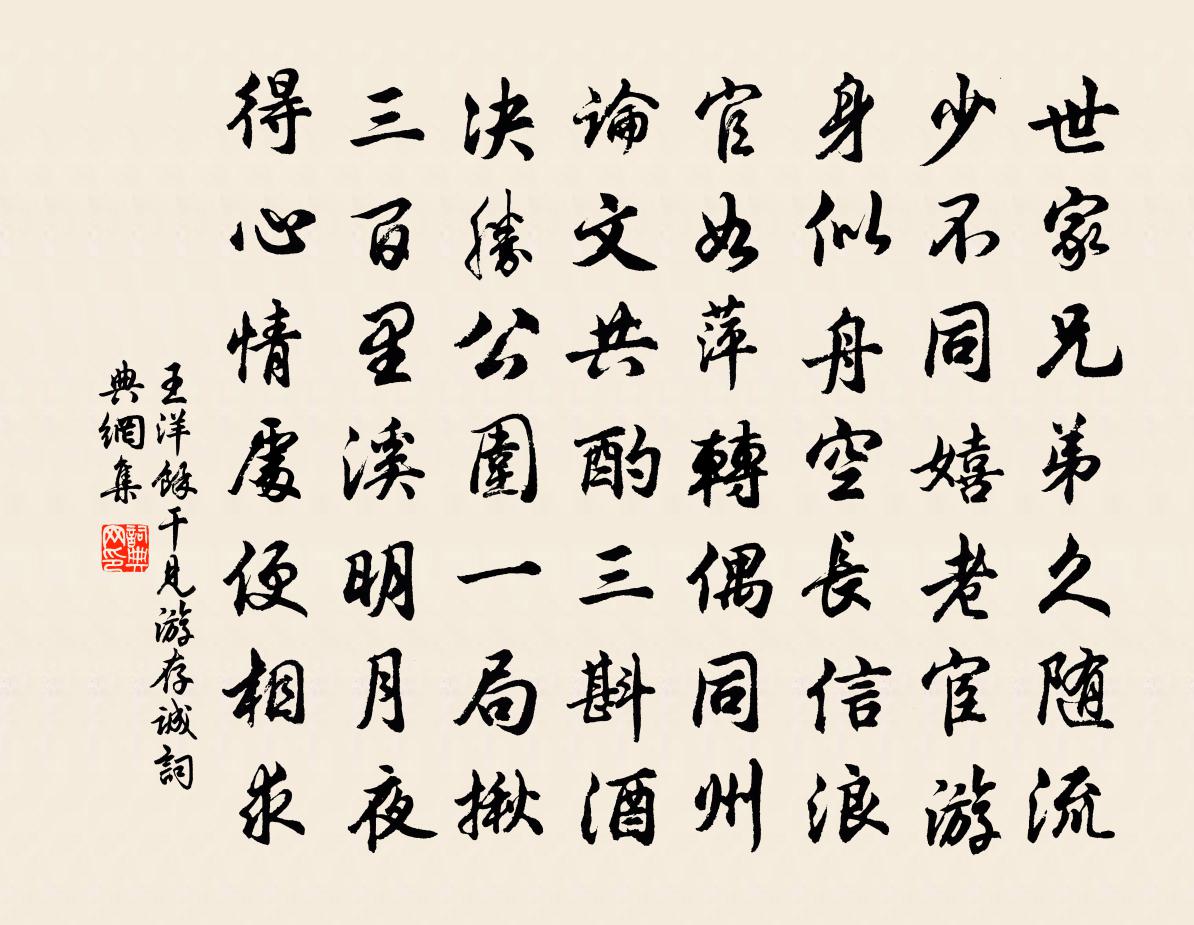 世家兄弟久随流
少不同嬉老宦游
身似舟空長信浪
官如萍轉偶同州
論文共酌三斟酒
决勝公圍一局揪
三百里溪明月夜
得心情處便相求
王洋餘干見游存誠詞
典網集
詞典
网印